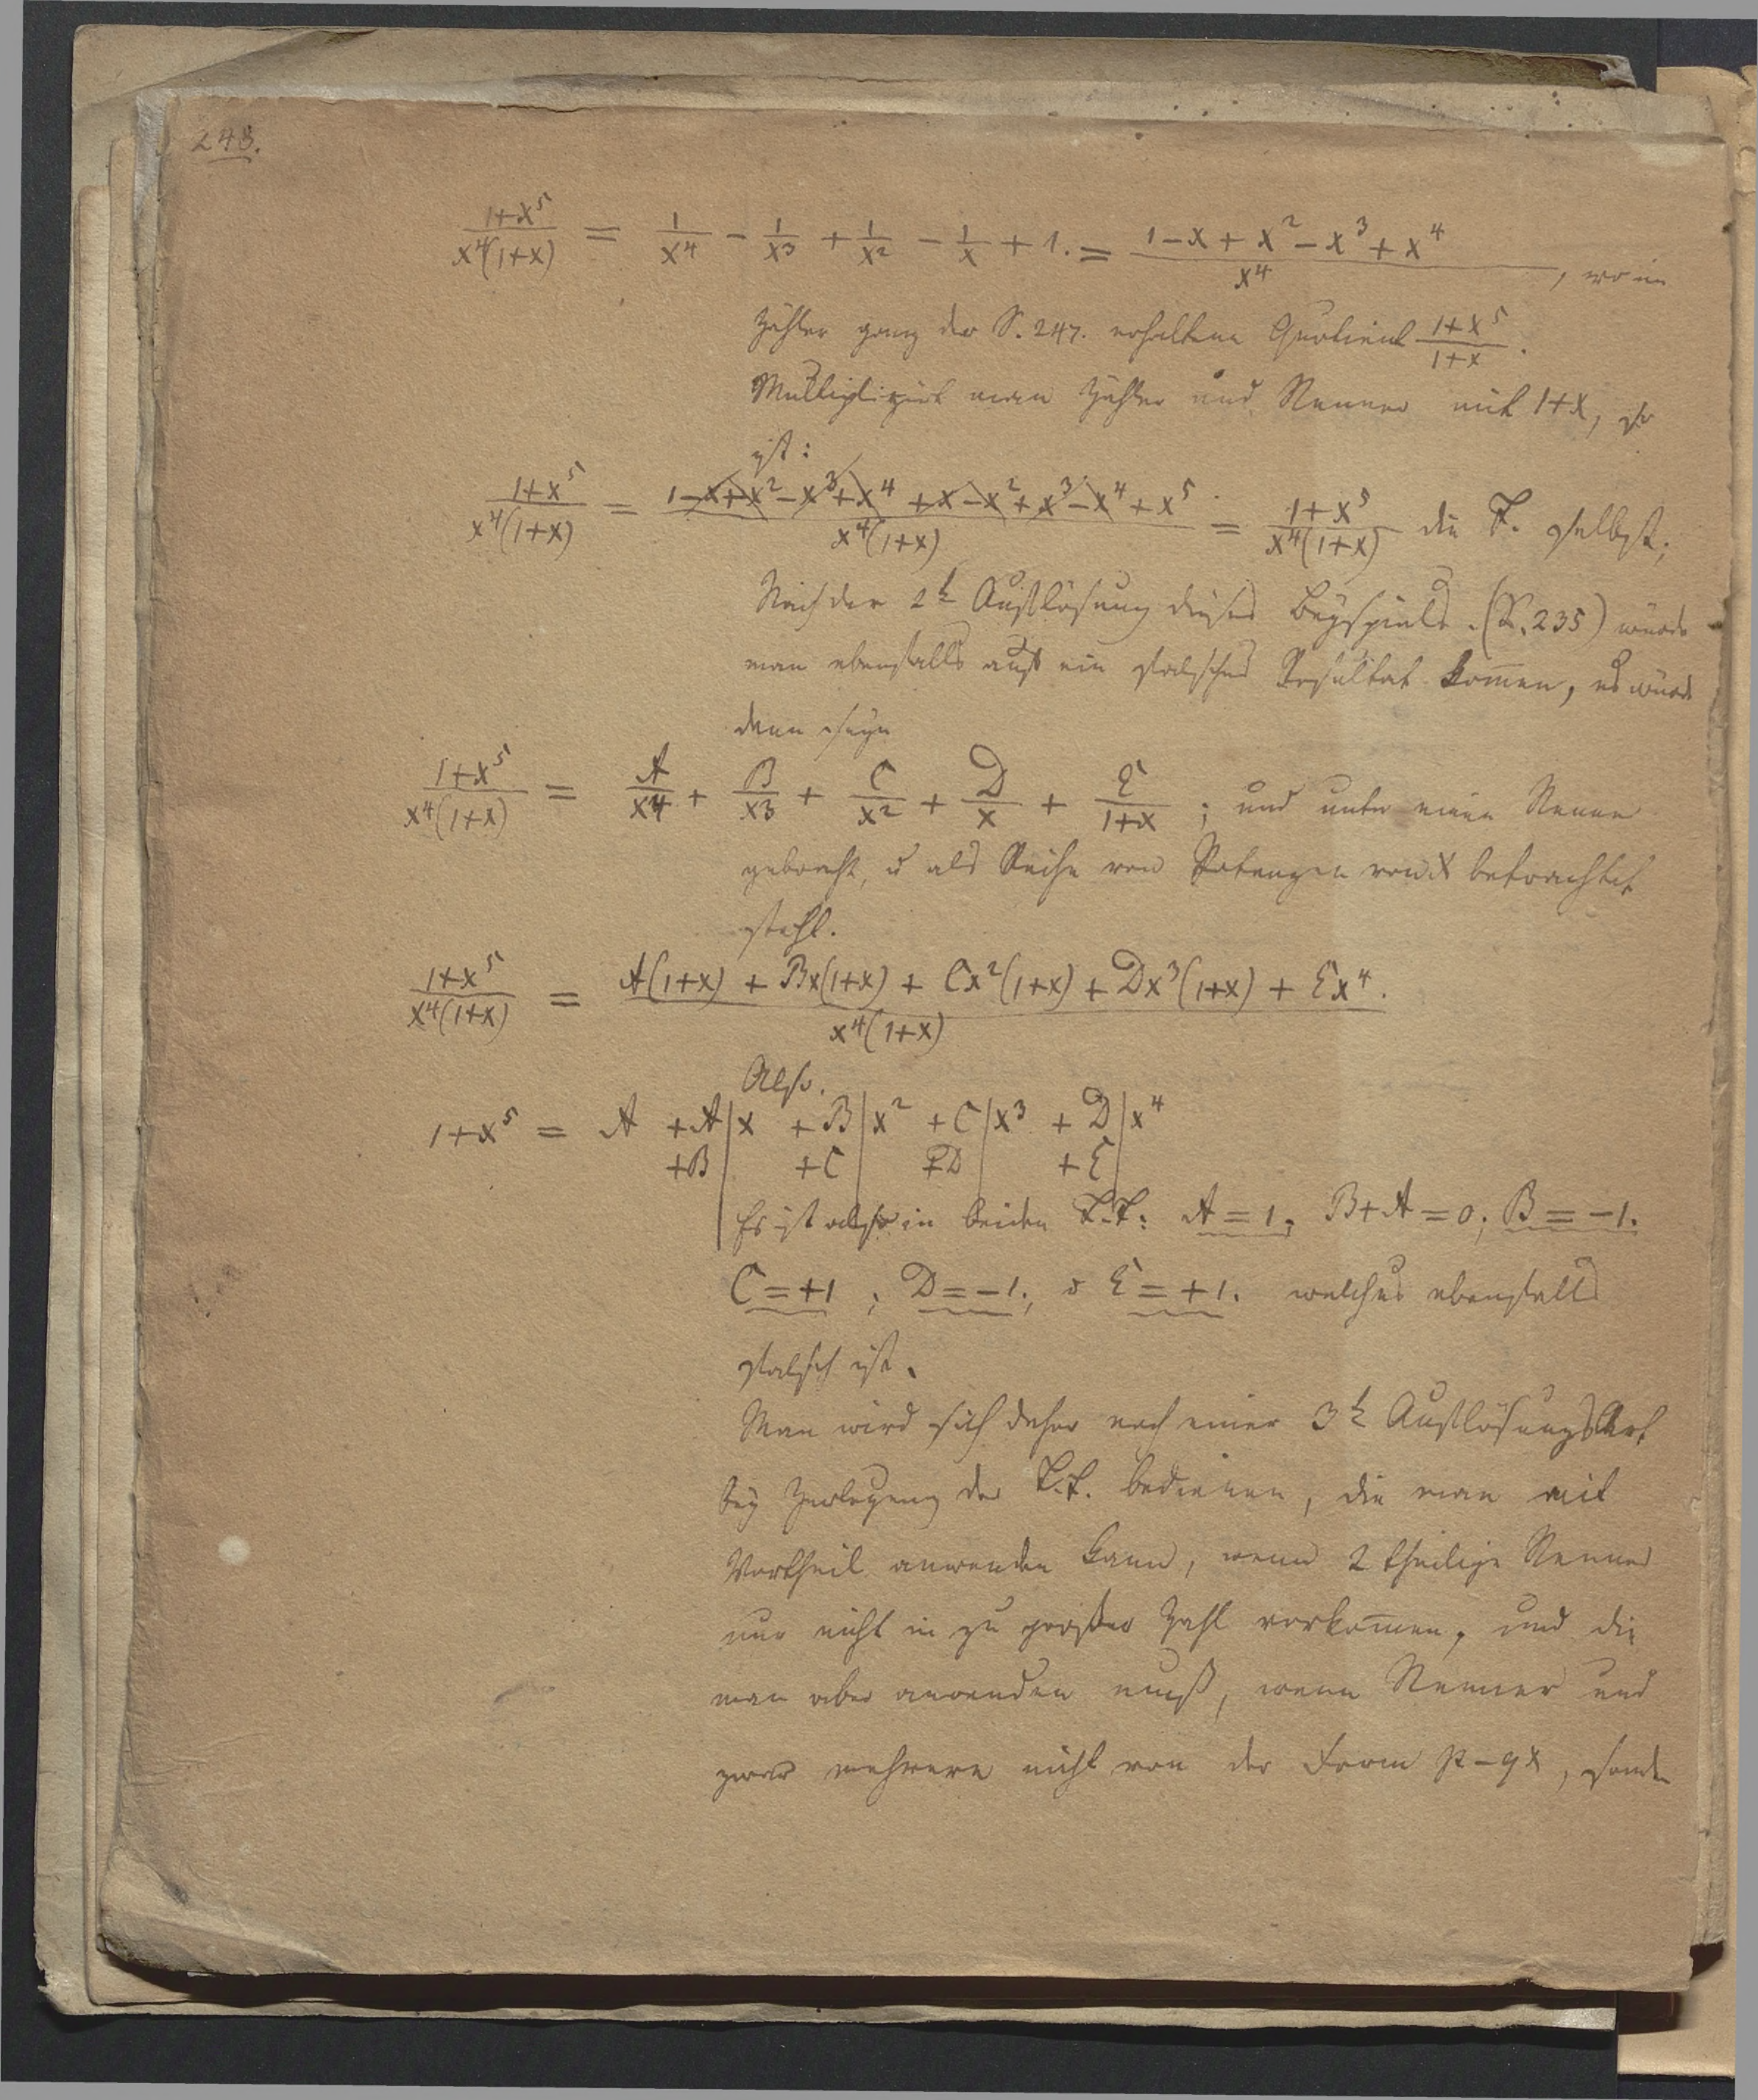 248.
(1+x⁵)/(x⁴(1+x)) = 1/x⁴ - 1/x³ + 1/x² - 1/x + 1. = (1-x+x²-x³+x⁴)/x⁴, wo im
Zähler ganz der S. 247. erhaltene Quotient (1+x⁵)/(1+x).
Multiplizirt man Zähler und Nenner mit 1+x, so
ist:
(1+x⁵)/(x⁴(1+x)) = (1-x+x²-x³+x⁴+x-x²+x³-x⁴+x⁵)/(x⁴(1+x)) = (1+x⁵)/(x⁴(1+x)) die F. selbst;
Nach der 2t Auflösung dieses Beyspiels. (S. 235) würde
man ebenfalls auf ein falsches Resultat kom̄en, es würde
denn seyn
(1+x⁵)/(x⁴(1+x)) = A/x⁴ + B/x³ + C/x² + D/x + E/(1+x); und unter einen Nenner
gebracht, u als Reihe von Potenzen von x betrachtet
steht.
(1+x⁵)/(x⁴(1+x)) = (A(1+x) + Bx(1+x) + Cx²(1+x) + Dx³(1+x) + Ex⁴.)/(x⁴(1+x))
Also.
1+x⁵ = A +A|x +B|x² +C|x³ +D|x⁴
+B| +C| +D| +E|
Es ist also in beiden F.F: A = 1; B+A = 0; B = -1.
C = +1; D = -1; u E = +1. welches ebenfalls
falsch ist.
Man wird sich daher noch einer 3t Auflösungs Art
bey Zerlegung der F.F. bedienen, die man mit
Vortheil anwenden kann, wenn 2 theilige Nenner
nur nicht in zu großer Zahl vorkom̄en, und die
man aber anwenden muß, wenn Nenner und
zwar mehrere nicht von der Form p-qx, sondern